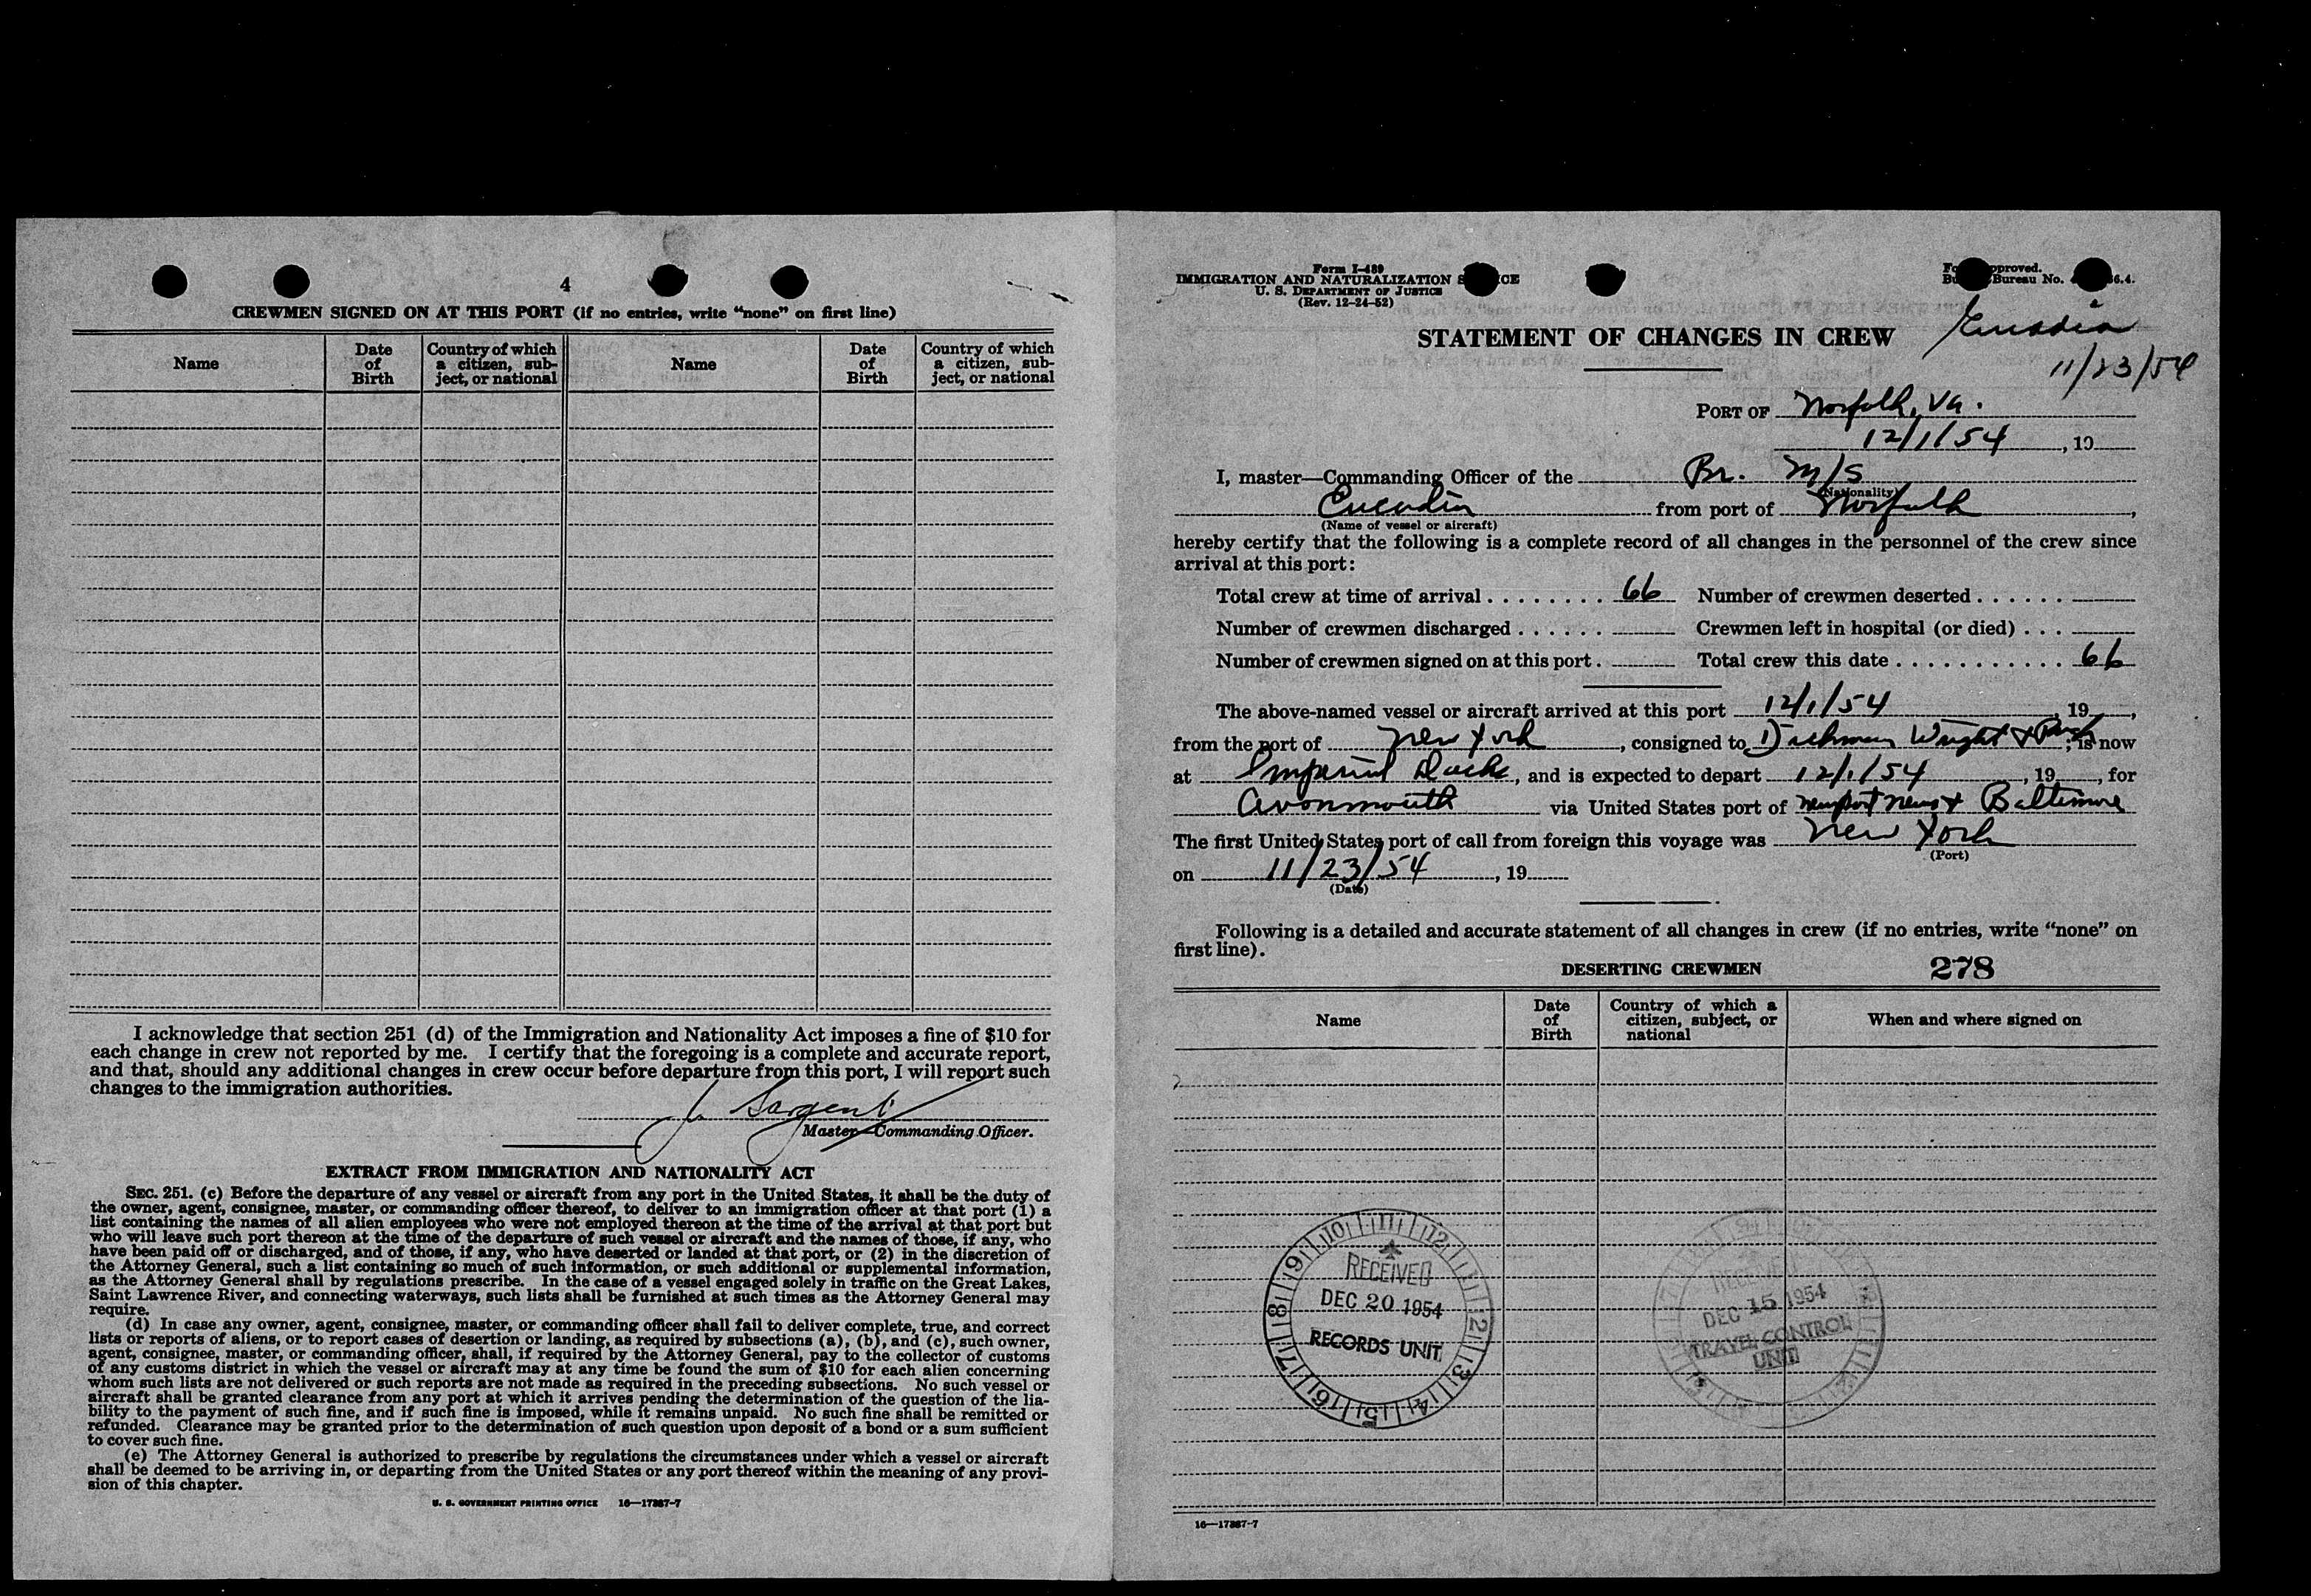 4
CREWMEN SIGNED ON AT THIS PORT (if no entries, write "none" on first line)
Name
Date of Birth
Country of which a citizen, subject, or national
Name
Date of Birth
Country of which a citizen, subject, or national
I acknowledge that section 251 (d) of the Immigration and Nationality Act imposes a fine of $10 for
each change in crew not reported by me. I certify that the foregoing is a complete and accurate report,
and that, should any additional changes in crew occur before departure from this port, I will report such
changes to the immigration authorities.
J. Sargent
Master—Commanding Officer.
EXTRACT FROM IMMIGRATION AND NATIONALITY ACT
SEC. 251. (c) Before the departure of any vessel or aircraft from any port in the United States, it shall be the duty of
the owner, agent, consignee, master, or commanding officer thereof, to deliver to an immigration officer at that port (1) a
list containing the names of all alien employees who were not employed thereon at the time of the arrival at that port but
who will leave such port thereon at the time of the departure of such vessel or aircraft and the names of those, if any, who
have been paid off or discharged, and of those, if any, who have deserted or landed at that port, or (2) in the discretion of
the Attorney General, such a list containing so much of such information, or such additional or supplemental information,
as the Attorney General shall by regulations prescribe. In the case of a vessel engaged solely in traffic on the Great Lakes,
Saint Lawrence River, and connecting waterways, such lists shall be furnished at such times as the Attorney General may
require.
(d) In case any owner, agent, consignee, master, or commanding officer shall fail to deliver complete, true, and correct
lists or reports of aliens, or to report cases of desertion or landing, as required by subsections (a), (b), and (c), such owner,
agent, consignee, master, or commanding officer, shall, if required by the Attorney General, pay to the collector of customs
of any customs district in which the vessel or aircraft may at any time be found the sum of $10 for each alien concerning
whom such lists are not delivered or such reports are not made as required in the preceding subsections. No such vessel or
aircraft shall be granted clearance from any port at which it arrives pending the determination of the question of the lia-
bility to the payment of such fine, and if such fine is imposed, while it remains unpaid. No such fine shall be remitted or
refunded. Clearance may be granted prior to the determination of such question upon deposit of a bond or a sum sufficient
to cover such fine.
(e) The Attorney General is authorized to prescribe by regulations the circumstances under which a vessel or aircraft
shall be deemed to be arriving in, or departing from the United States or any port thereof within the meaning of any provi-
sion of this chapter.
U. S. GOVERNMENT PRINTING OFFICE 16—17387-7
Form I-489
IMMIGRATION AND NATURALIZATION
U. S. DEPARTMENT OF JUSTICE
(Rev. 12-24-52)
Bureau No.
STATEMENT OF CHANGES IN CREW
11/23/54
PORT OF Norfolk, Va.
12/1/54, 19
I, master—Commanding Officer of the Br. M/S
(Nationality)
from port of Norfolk,
(Name of vessel or aircraft)
hereby certify that the following is a complete record of all changes in the personnel of the crew since
arrival at this port:
Total crew at time of arrival . . . . . . . . 66 Number of crewmen deserted . . . . . .
Number of crewmen discharged . . . . . . Crewmen left in hospital (or died) . . .
Number of crewmen signed on at this port . Total crew this date . . . . . . . . . . . . 66
The above-named vessel or aircraft arrived at this port 12/1/54, 19,
from the port of New York, consigned to Wright &; is now
at Imperial Docks, and is expected to depart 12/1/54, 19, for
Avonmouth via United States port of Newport News & Baltimore
The first United States port of call from foreign this voyage was New York
(Port)
on 11/23/54, 19
(Date)
Following is a detailed and accurate statement of all changes in crew (if no entries, write "none" on
first line).
DESERTING CREWMEN 278
Name
Date of Birth
Country of which a citizen, subject, or national
When and where signed on
RECEIVED
DEC 20 1954
RECORDS UNIT
RECEIVED
DEC 15 1954
TRAVEL CONTROL
UNIT
16—17387-7